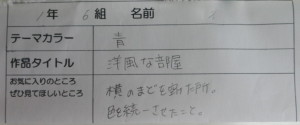 1年 6組 名前
テーマカラー 青
作品タイトル 洋風な部屋
お気に入りのところ
ぜひ見てほしいところ
横のまどを
色を統一させたこと。